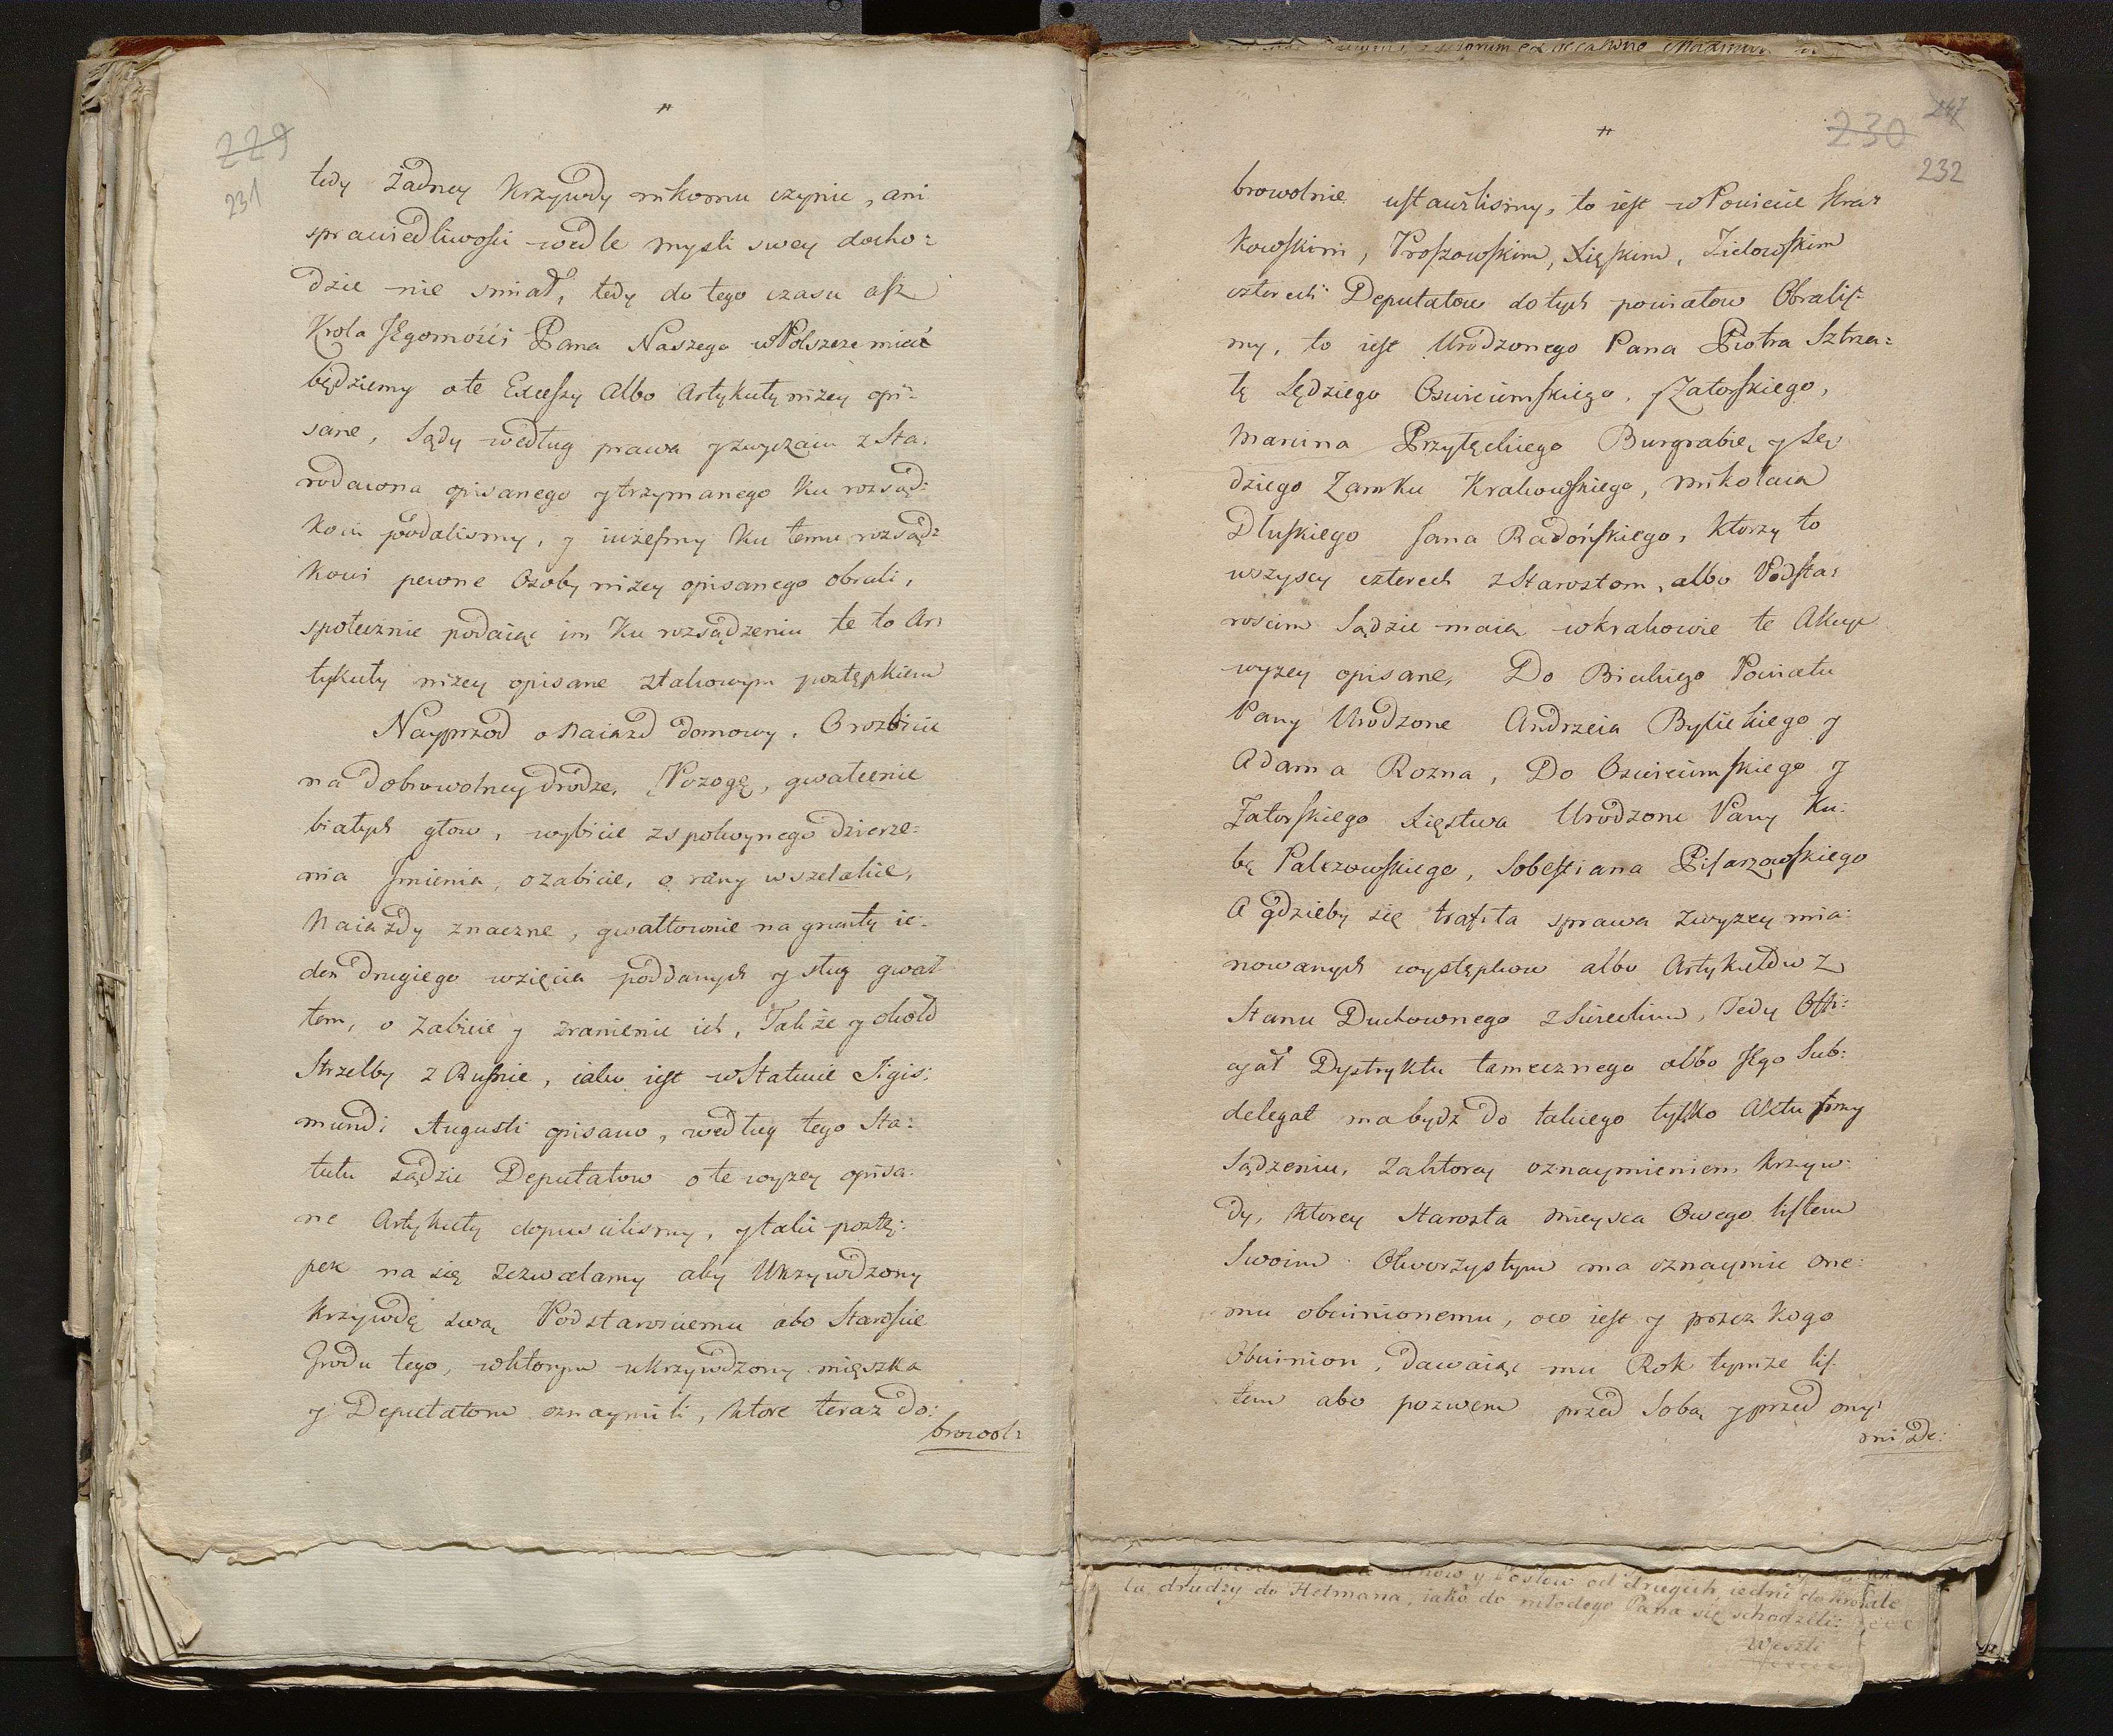 229
231
tedy żadney Krzywdy nikomu czynic, ani
sprawiedliwosci wedle mysli swey docho:
dzic nie smiał, tedy do tego czasu asz
Krola Jegomości Pana Naszego w Polszcze mieć
będziemy o te Excessy Albo Artykuły niżey opi:
sane, Sądy według prawa y zwyczaiu z Sta:
rodawna opisanego y trzymanego ku rozsąd:
kowi podalismy, y iużesmy ku temu rozsąd:
kowi pewne Osoby niżey opisanego obrali,
społecznie podaiąc im ku rozsądzeniu te to Ar:
tykuły niżey opisane z takowym postępkiem
Nayprzod o Naiazd domowy, O rozbicie
na dobrowolney drodze, Pozogę, gwałcenie
białych głow, wybicie z spokoynego dzierze:
nia Jmienia, o zabicie, o rany wszelakie,
Naiazdy znaczne, gwałtownie na grunty ie:
den drugiego wzięcia poddanych y sług gwał
tem, o zabicie y zranienie ich, Także y około
Strzelby z Rusnic, iako iest w Statucie Sigis:
mundi Augusti opisano, według tego Sta:
tutu sądzic Deputatow o te wyzey opisa:
ne Artykuły dopuscilismy, y taki postę:
pek na się zezwalamy aby Ukrzywdzony
krzywdę swą Podstarosciemu abo Staroscie
Grodu tego, w ktorym ukrzywdzony mięszka
y Deputatom oznaymili, ktore teraz do:
browol:
230
247
232
browolnie ustawilismy, to iest w Powiecie Kra:
kowskim, Proszowskim, Xięskim, Lelowskim
czterech Deputatow do tych powiatow Obralis:
my, to iest Urodzonego Pana Piotra Sztrza:
łę Sędziego Oswiecimskiego, y Zatorskiego,
Marcina Przyłęckiego Burgrabię y Sę:
dziego Zamku Krakowskiego, Mikołaia
Dłuskiego Jana Radońskiego, ktorzy to
wszyscy czterech z Starostom, albo Podsta:
roscim Sądzic maią w Krakowie te Akcye
wyzey opisane, Do Bieckiego Powiatu
Pany Urodzone Andrzeia Bylickiego y
Adama Rozna, Do Oswiecimskiego y
Zatorskiego Xięstwa Urodzone Pany Ku:
bę Palczowskiego, Sobestiana Pisarzowskiego
A gdzieby się trafiła sprawa z wyzey mia:
nowanych występkow albo Artykułow z
Stanu Duchownego z Swieckim, Tedy Offi:
cyał Dystryktu tamecznego albo Jego Sub:
delegat ma bydz do takiego tylko Aktu przy
Sądzeniu, za ktorey oznaymieniem krzyw:
dy, ktorey Starosta mieysca Owego listem
Swoim Otworzystym ma oznaymic one:
mu obwinionemu, o co iest y przez kogo
Obwinion, dawaiąc mu Rok tymze lis:
tem abo pozwem przed Sobą y przed ony:
mi De:
od drugich iedni do krola
la, drudzy do Hetmana, iako do młodego Pana się schodzili:
Weszli